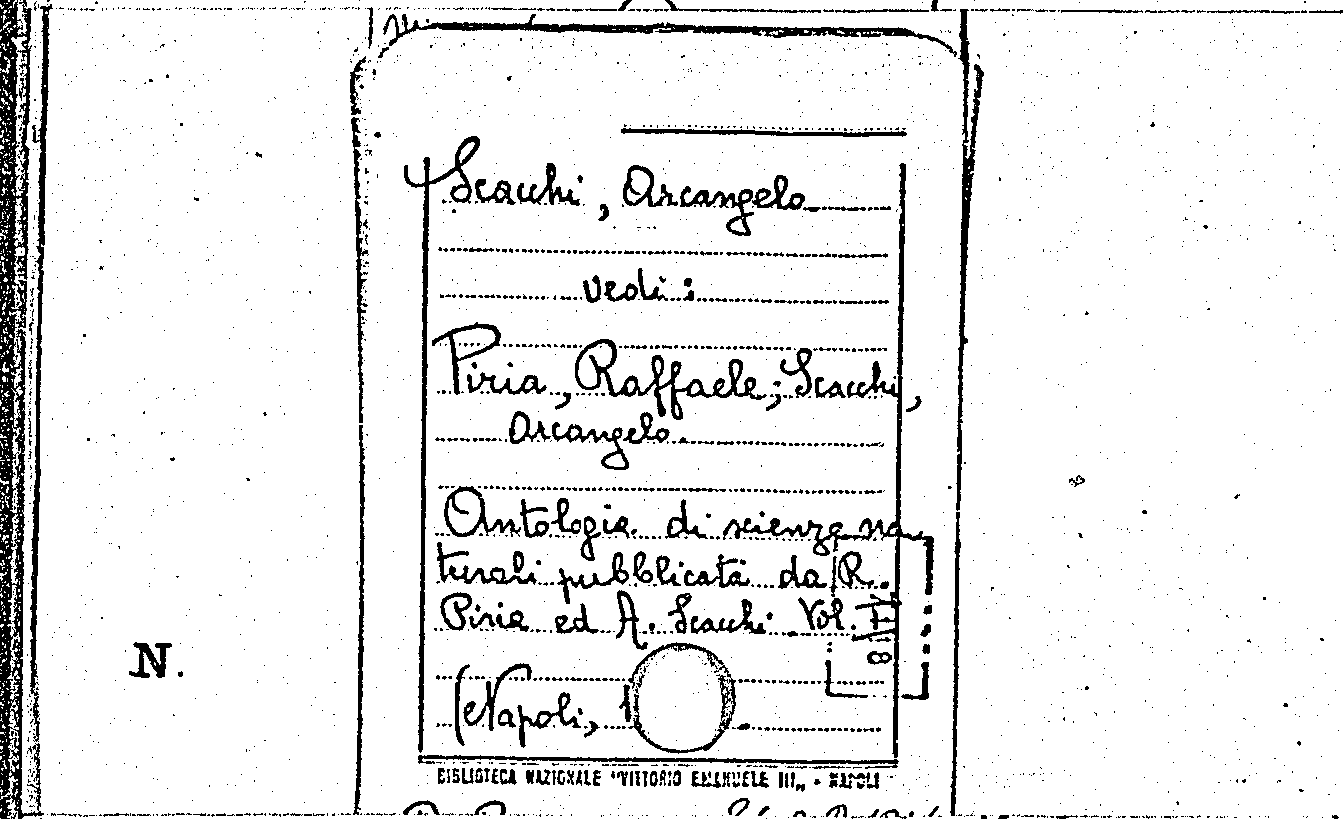 Scacchi, Arcangelo
vedi:
Piria, Raffaele; Scacchi,
Arcangelo.
Antologia di scienze na
turali pubblicata da R.
Piria ed A. Scacchi. Vol. I
18
N.
(Napoli, 1
BIBLIOTECA NAZIONALE "VITTORIO EMANUELE III„ - NAPOLI